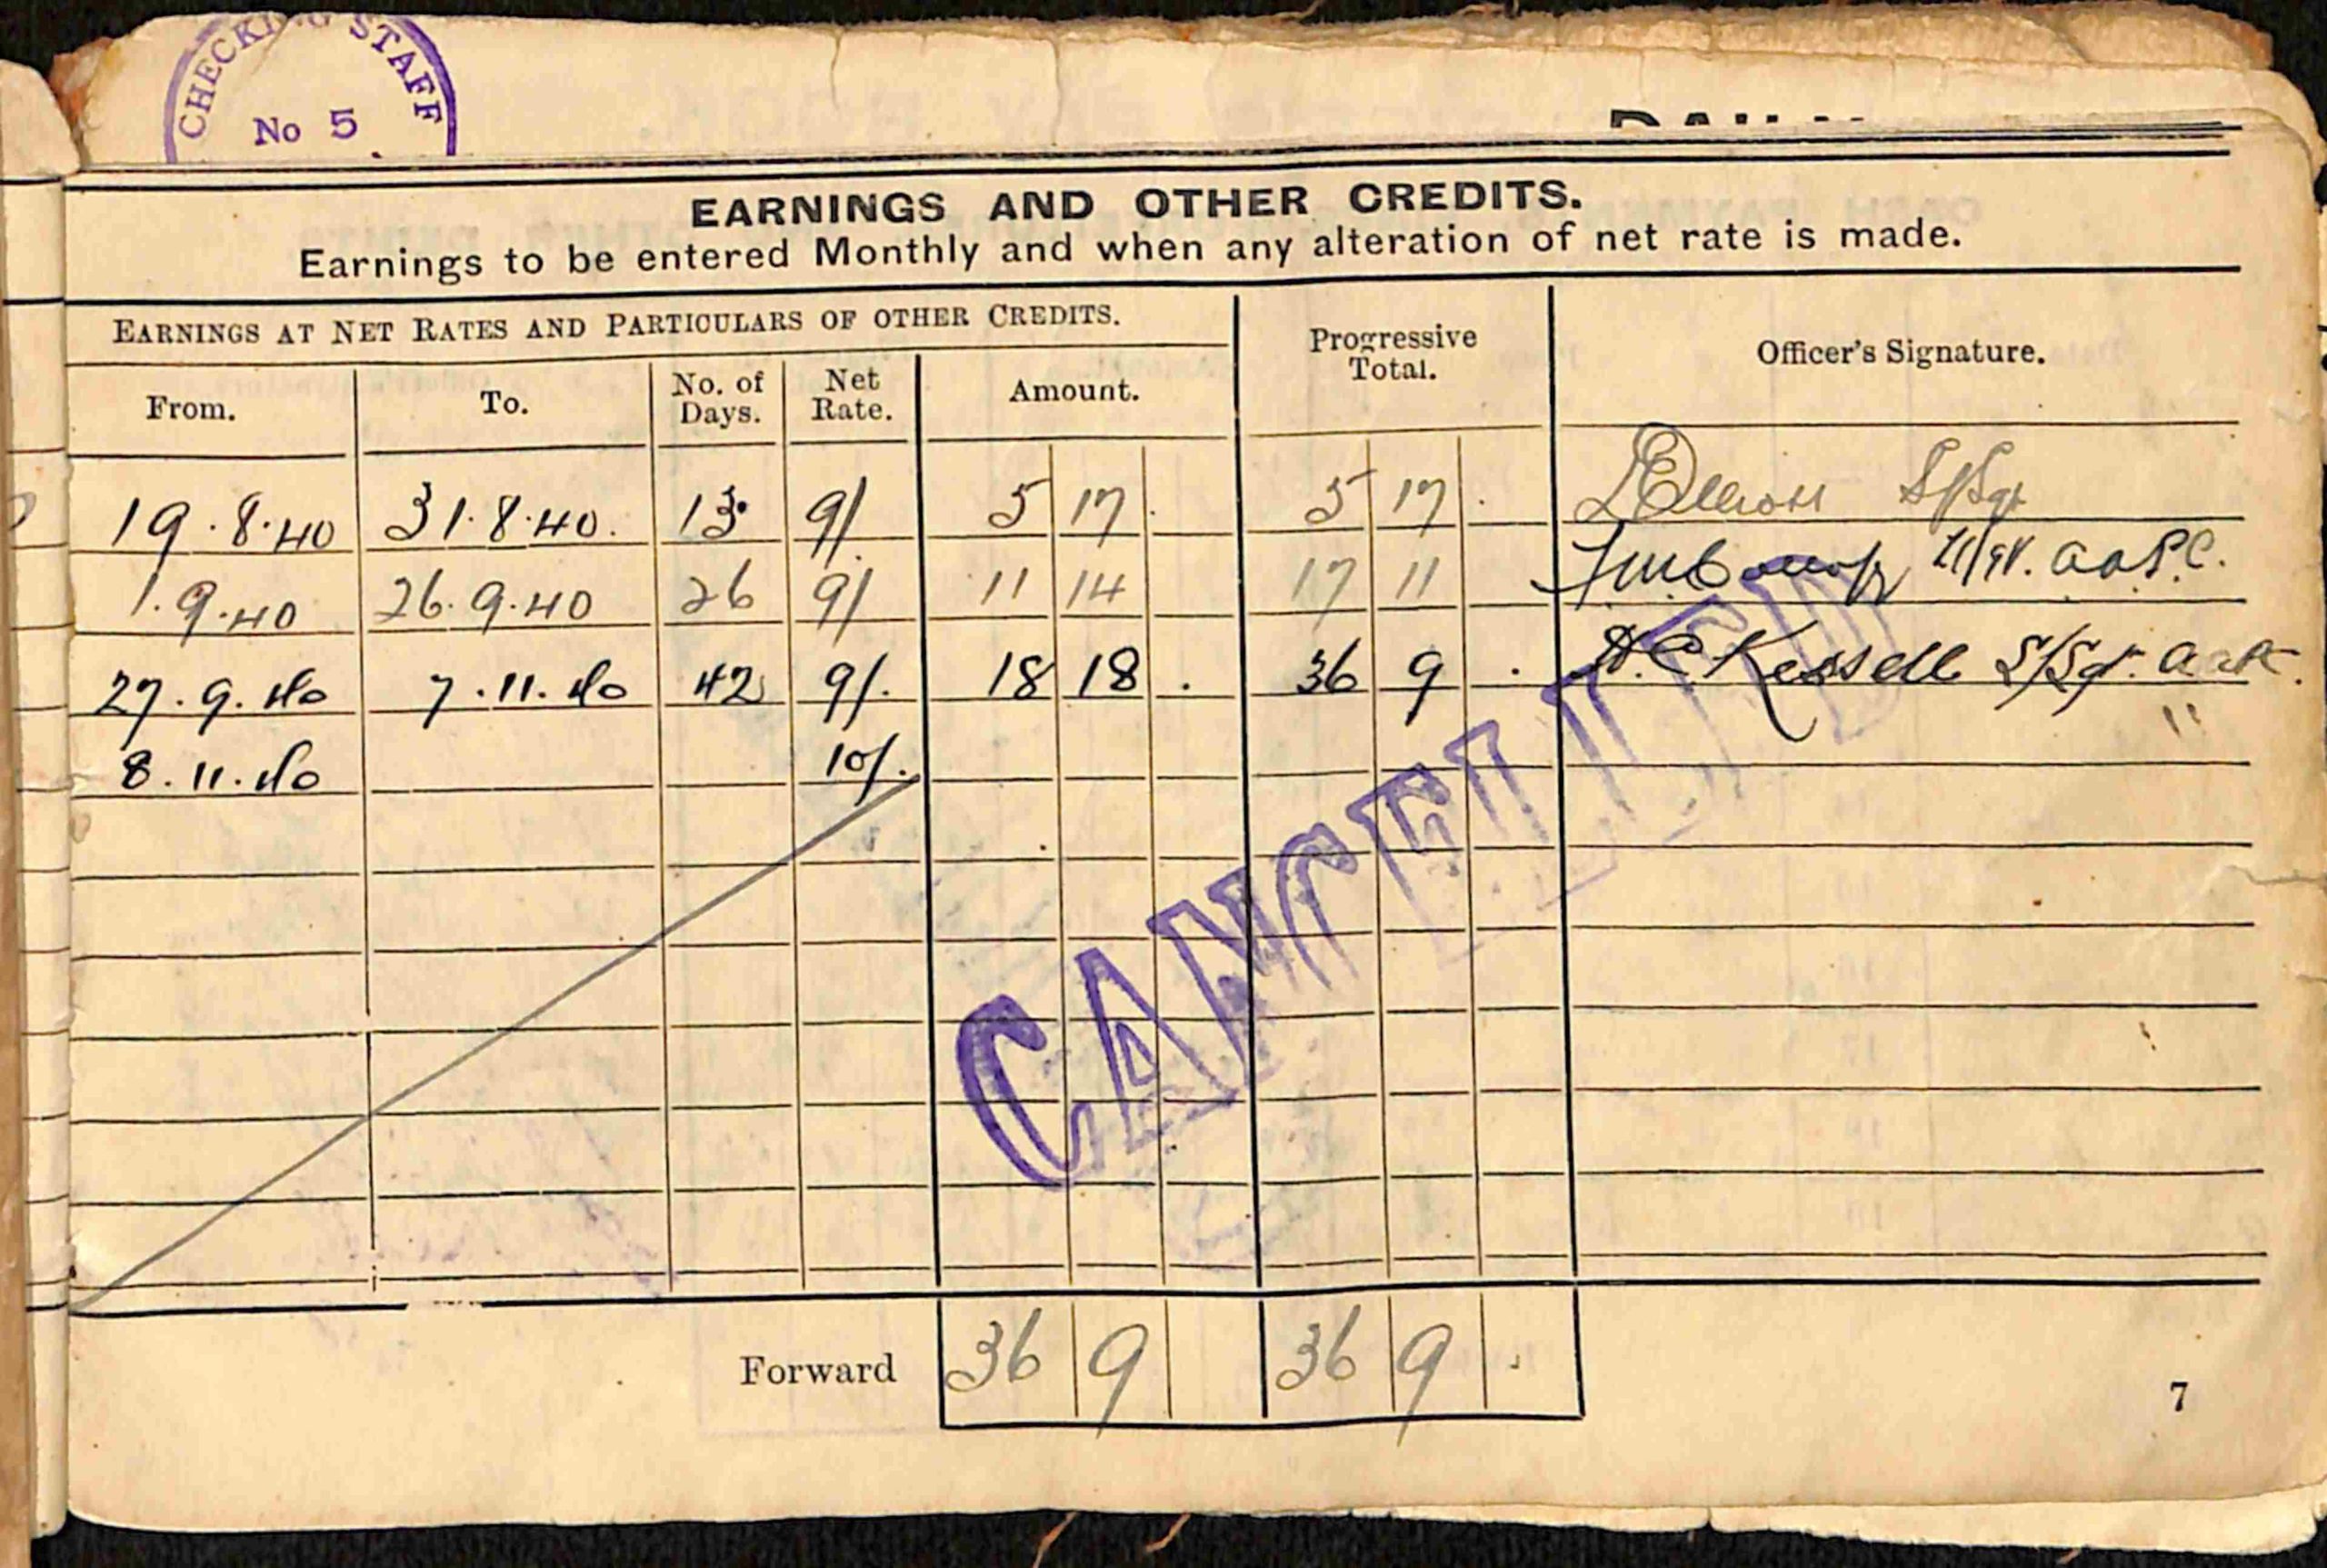 CHECKING STAFF
No 5
EARNINGS AND OTHER CREDITS.
Earnings to be entered Monthly and when any alteration of net rate is made.
EARNINGS AT NET RATES AND PARTICULARS OF OTHER CREDITS.
Progressive Total.
Officer's Signature.
From. To. No. of Days. Net Rate. Amount.
19.8.40 31.8.40. 13 9/ 5 17 . 5 17 . S/Sgt
1.9.40 26.9.40 26 9/ 11 14 17 11 AAPC.
27.9.40 7.11.40 42 9/. 18 18 . 36 9 . Kessell S/Sgt.
8.11.40 10/. "
CANCELLED
Forward 36 9 36 9 .
7